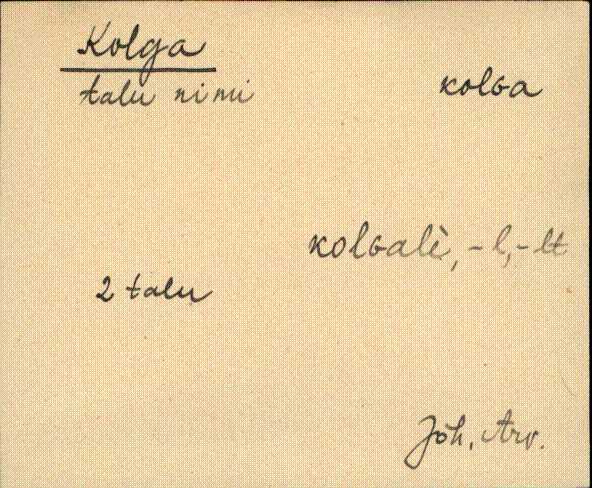 Kolga
talu nimi
kolɢa
kolɢalè, -l, -lt
2 talu
Jõh, Arv.